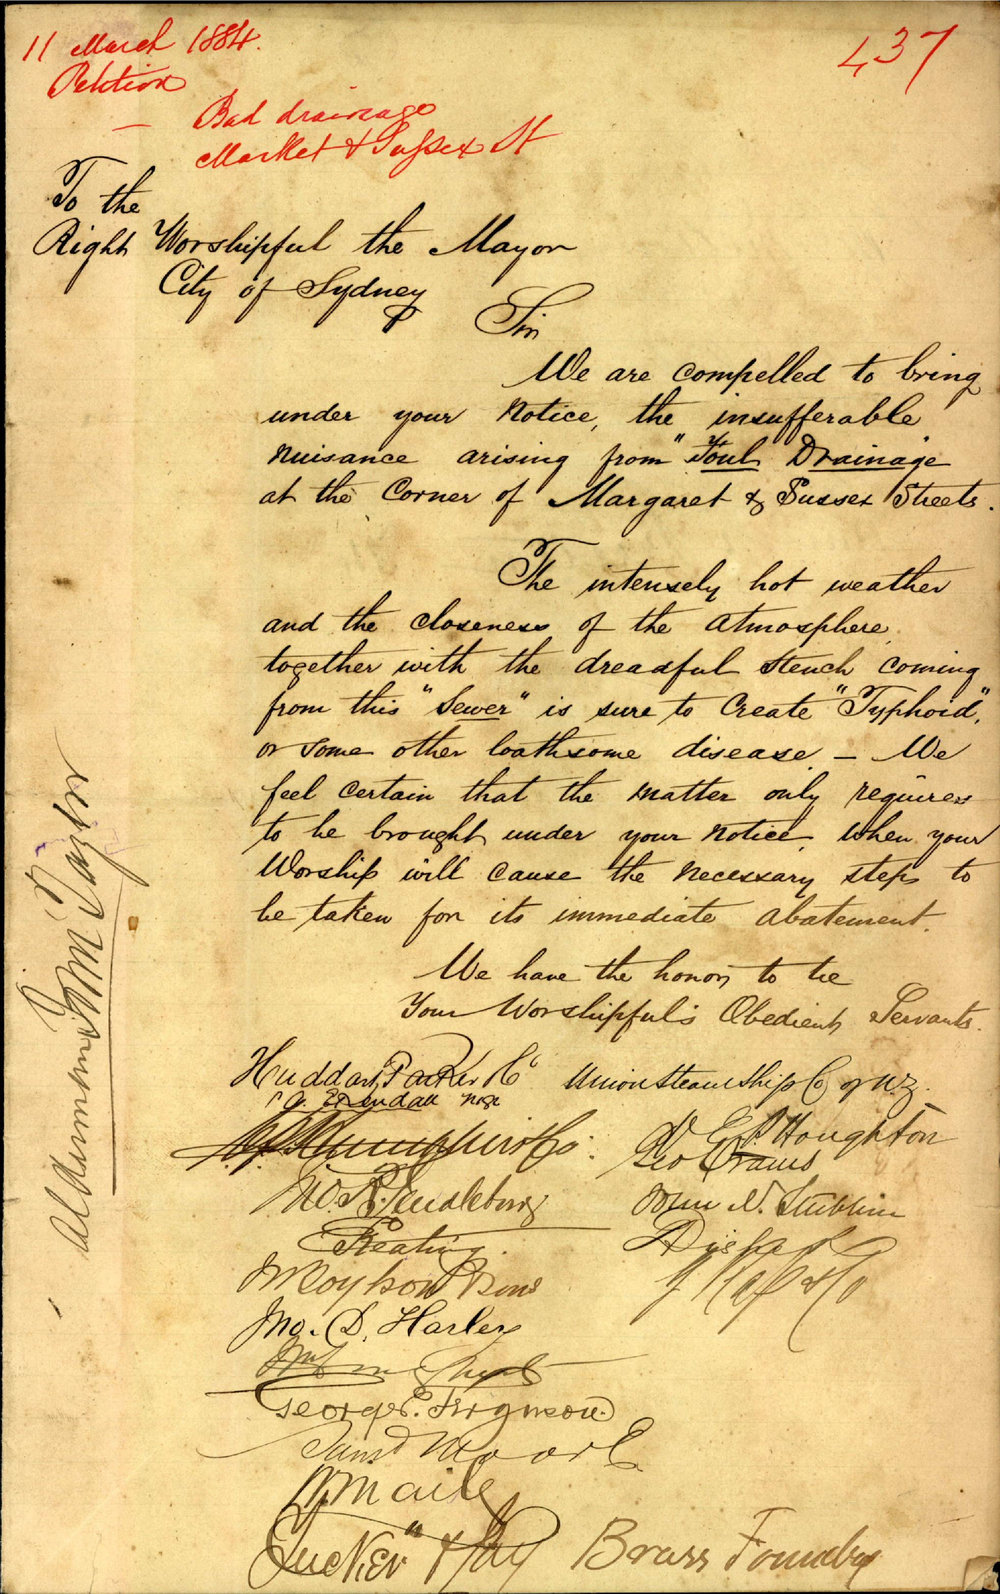 11 March 1884.
437
Petition
— Bad drainage
Market & Sussex St
To the
Right Worshipful the Mayor
City of Sydney
Sir
We are compelled to bring
under your Notice, the insufferable
Nuisance arising from "Foul Drainage"
at the Corner of Margaret & Sussex Streets.
The intensely hot weather
and the closeness of the atmosphere,
together with the dreadful stench coming
from this "Sewer" is sure to Create "Typhoid",
or some other loathsome disease. — We
feel certain that the matter only requires
to be brought under your notice, when your
Worship will cause the necessary steps to
be taken for its immediate abatement.
We have the honor to be
Your Worshipful's Obedient Servants.
Huddart Parker & Co
Union Steam Ship Co of N.Z.
Houghton
Geo Evans
Jno. R.
Wm N.
Keating
& Sons
Jno. D. Harley
George E. Ferguson
Moore
Tucker & Kay Brass Foundry
Alderman Taylor